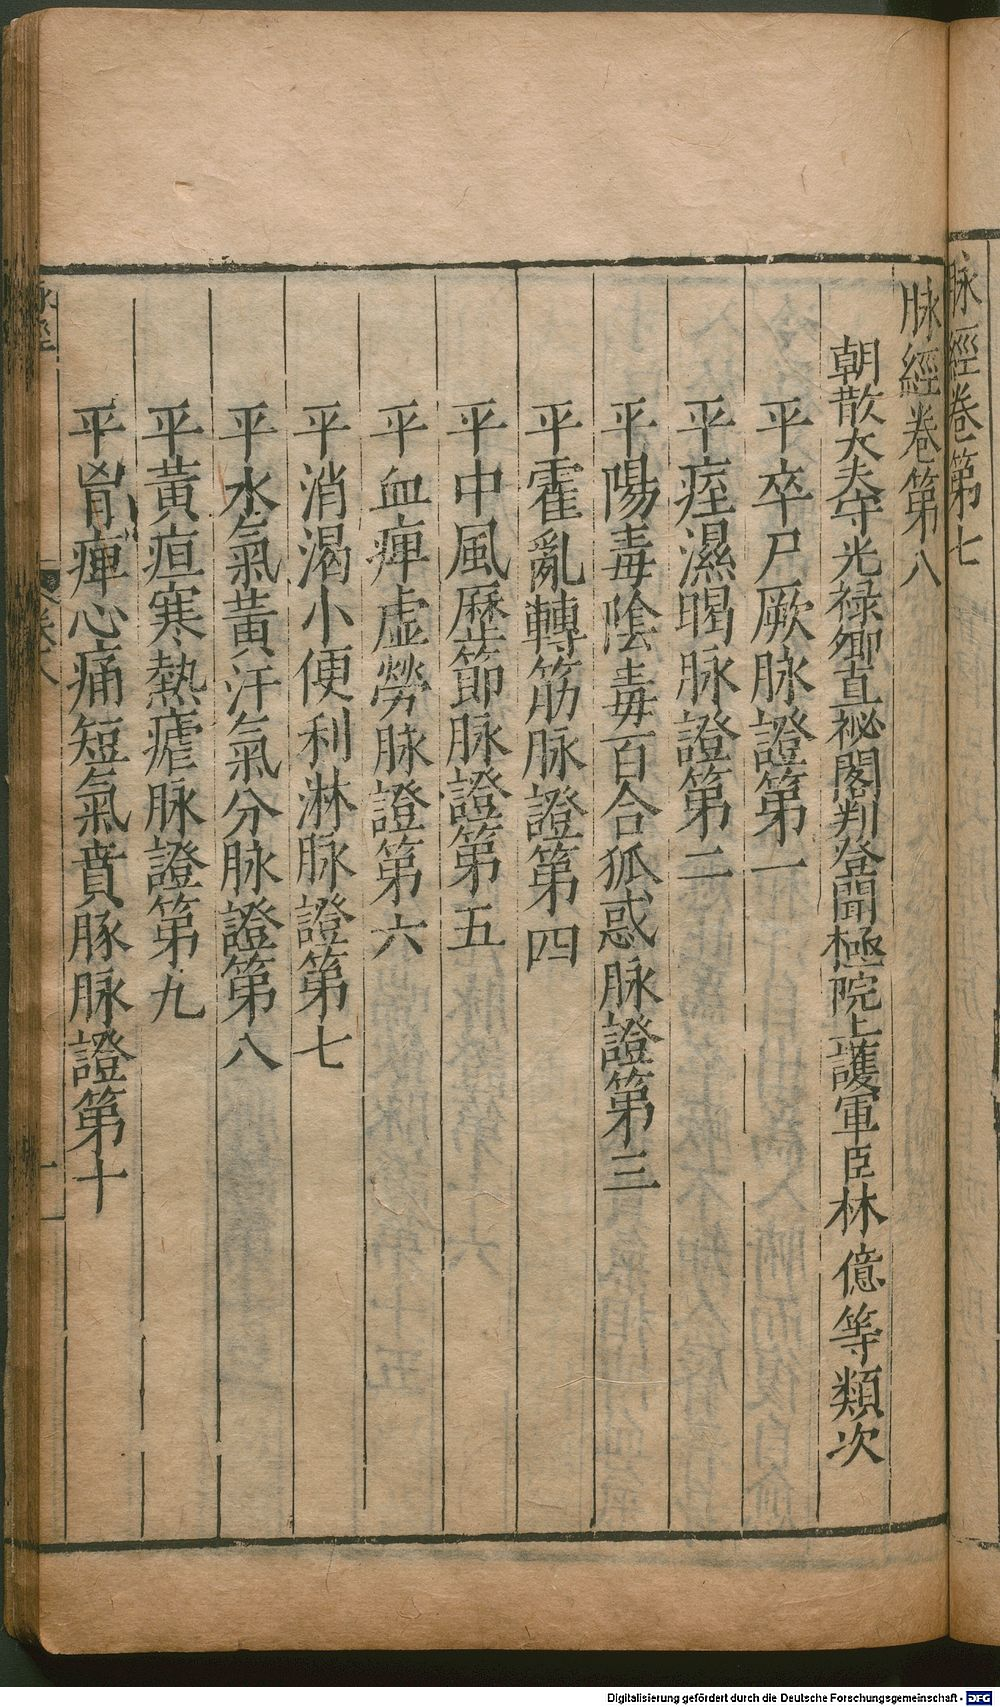 脉經卷第七
脉經卷第八
朝散大夫守光禄卿直祕閣判登聞極院上護軍臣林億等類次
平卒尸厥脉證第一
平痓濕暍脉證第二
平陽毒陰毒百合狐惑脉證第三
平霍亂轉筋脉證第四
平中風歷節脉證第五
平血痺虛勞脉證第六
平消渴小便利淋脉證第七
平水氣黄汗氣分脉證第八
平黄疸寒熱瘧脉證第九
平胷痺心痛短氣賁豚脉證第十
Digitalisierung gefördert durch die Deutsche Forschungsgemeinschaft - DFG